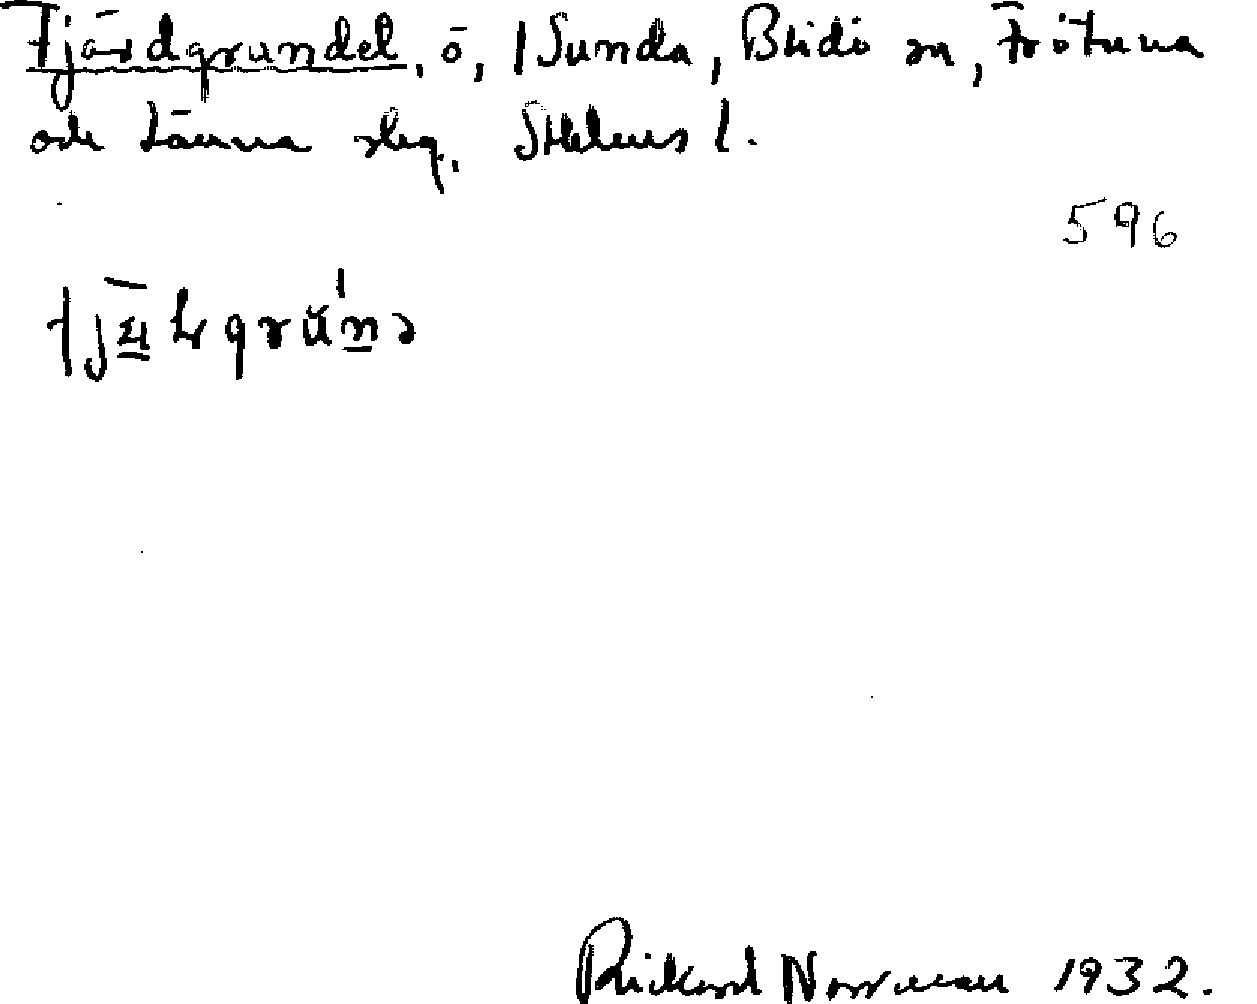 Fjärdgrundet, ö, /Sunda, Blidö sn, Frötuna
och Länna slg, Sthlms l.
596
Rickard Norrman 1932.